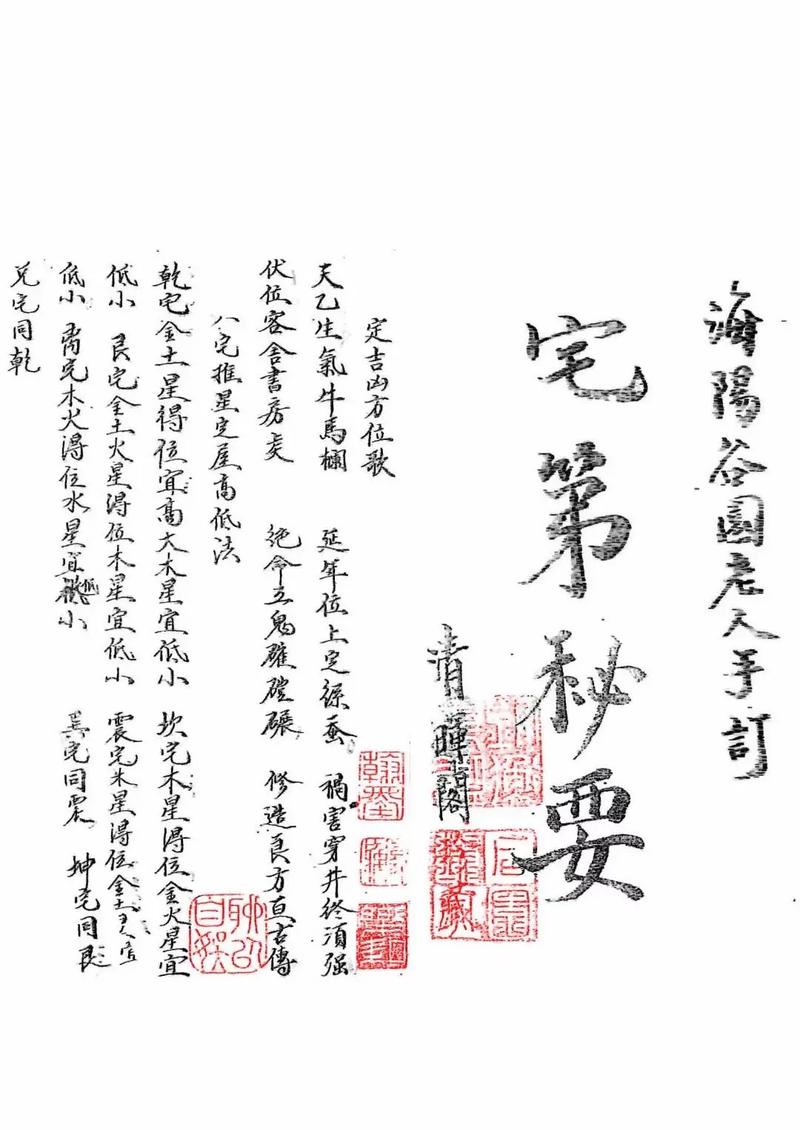 海陽谷園老人手訂
宅第秘要
清暉閣
定吉凶方位歌
天乙生氣牛馬欄 延年位上定 蚕 禍害穿井终須强
伏位客舍書房矣 绝命五鬼碓磑碾 修造良方亘古傳
八宅推星定屋高低法
乾宅金土星得位宜高大木星宜低小 坎宅木星得位金火星宜
低小 艮宅金土火星得位木星宜低小 震宅木星得位金土 宜
低小 离宅木火得位水星宜低小 巽宅同震 坤宅同艮
兑宅同乾
翰墨
聊以自娱